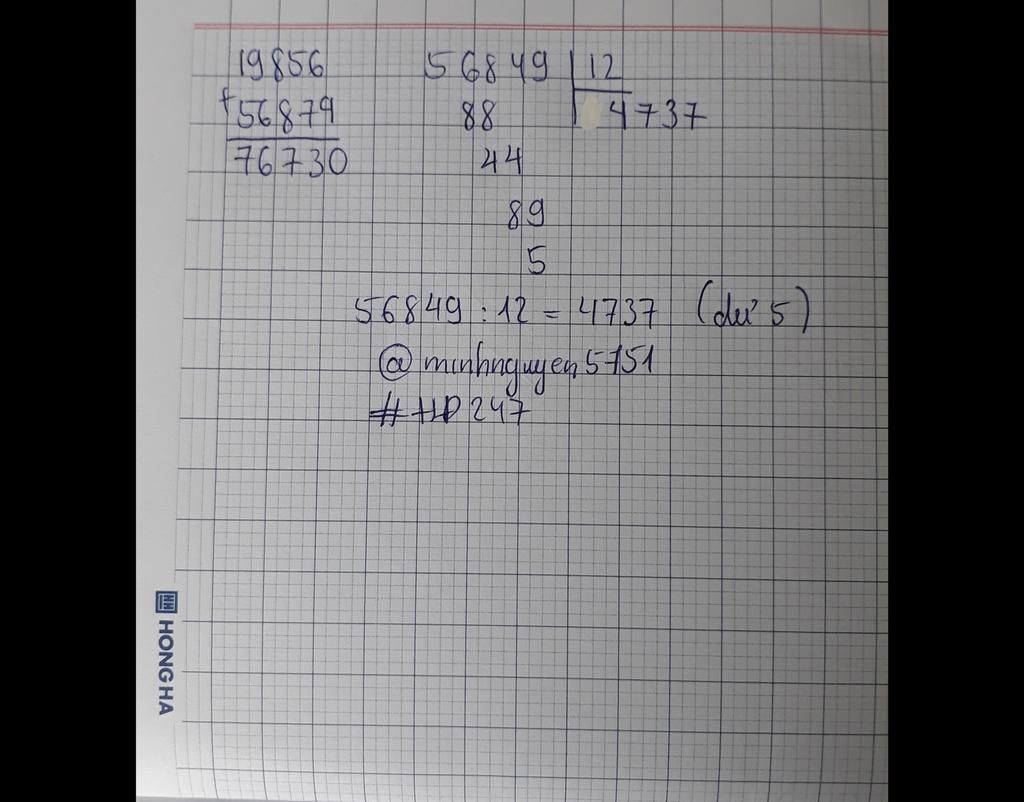 19856
+56879
76730
56849 | 12
88 4737
44
89
5
56849 : 12 = 4737 (dư 5)
@minhnguyen5751
#HD247
HONG HA